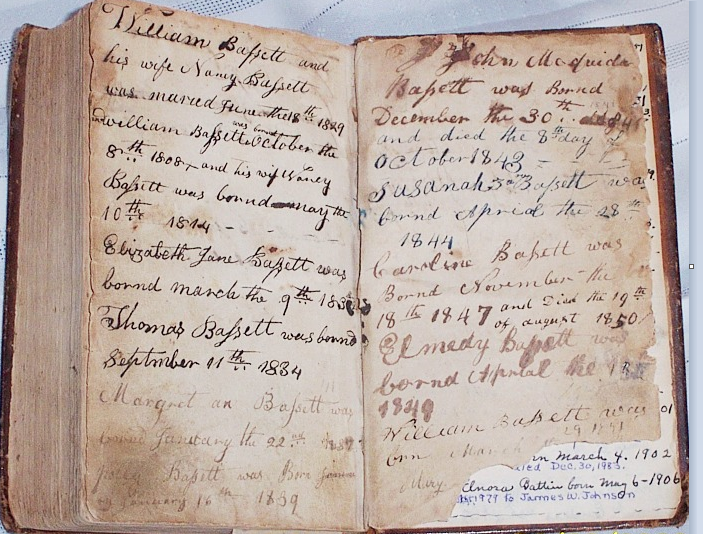 William Bassett and
his wife Nancy Bassett
was maried June the 18th 1829
was bornd
william Bassett October the
8th 1808 and his wif Nancy
Bassett was bornd may the
10th 1814
Elizabeth Jane Bassett was
bornd march the 9th
Thomas Bassett was bornd
September 11th 1834
Margret an Bassett was
bornd January the 22
Bassett was Born
January 16th 1839
John McQuida
Bassett was Bornd
December the 30th
and died the 8th day of
October 1843
Susanah Bassett was
bornd Aprial the 28
1844
Caroline Bassett was
Bornd November the
18th 1847 and Died the 19th
of august 1850
Elmedy Bassett was
bornd Aprial the
1849
William Bassett was
born March
in March 4. 1902
died Dec. 30, 1983.
Mary Elnora Battin born May 6-1906
1929 to James W. Johnson